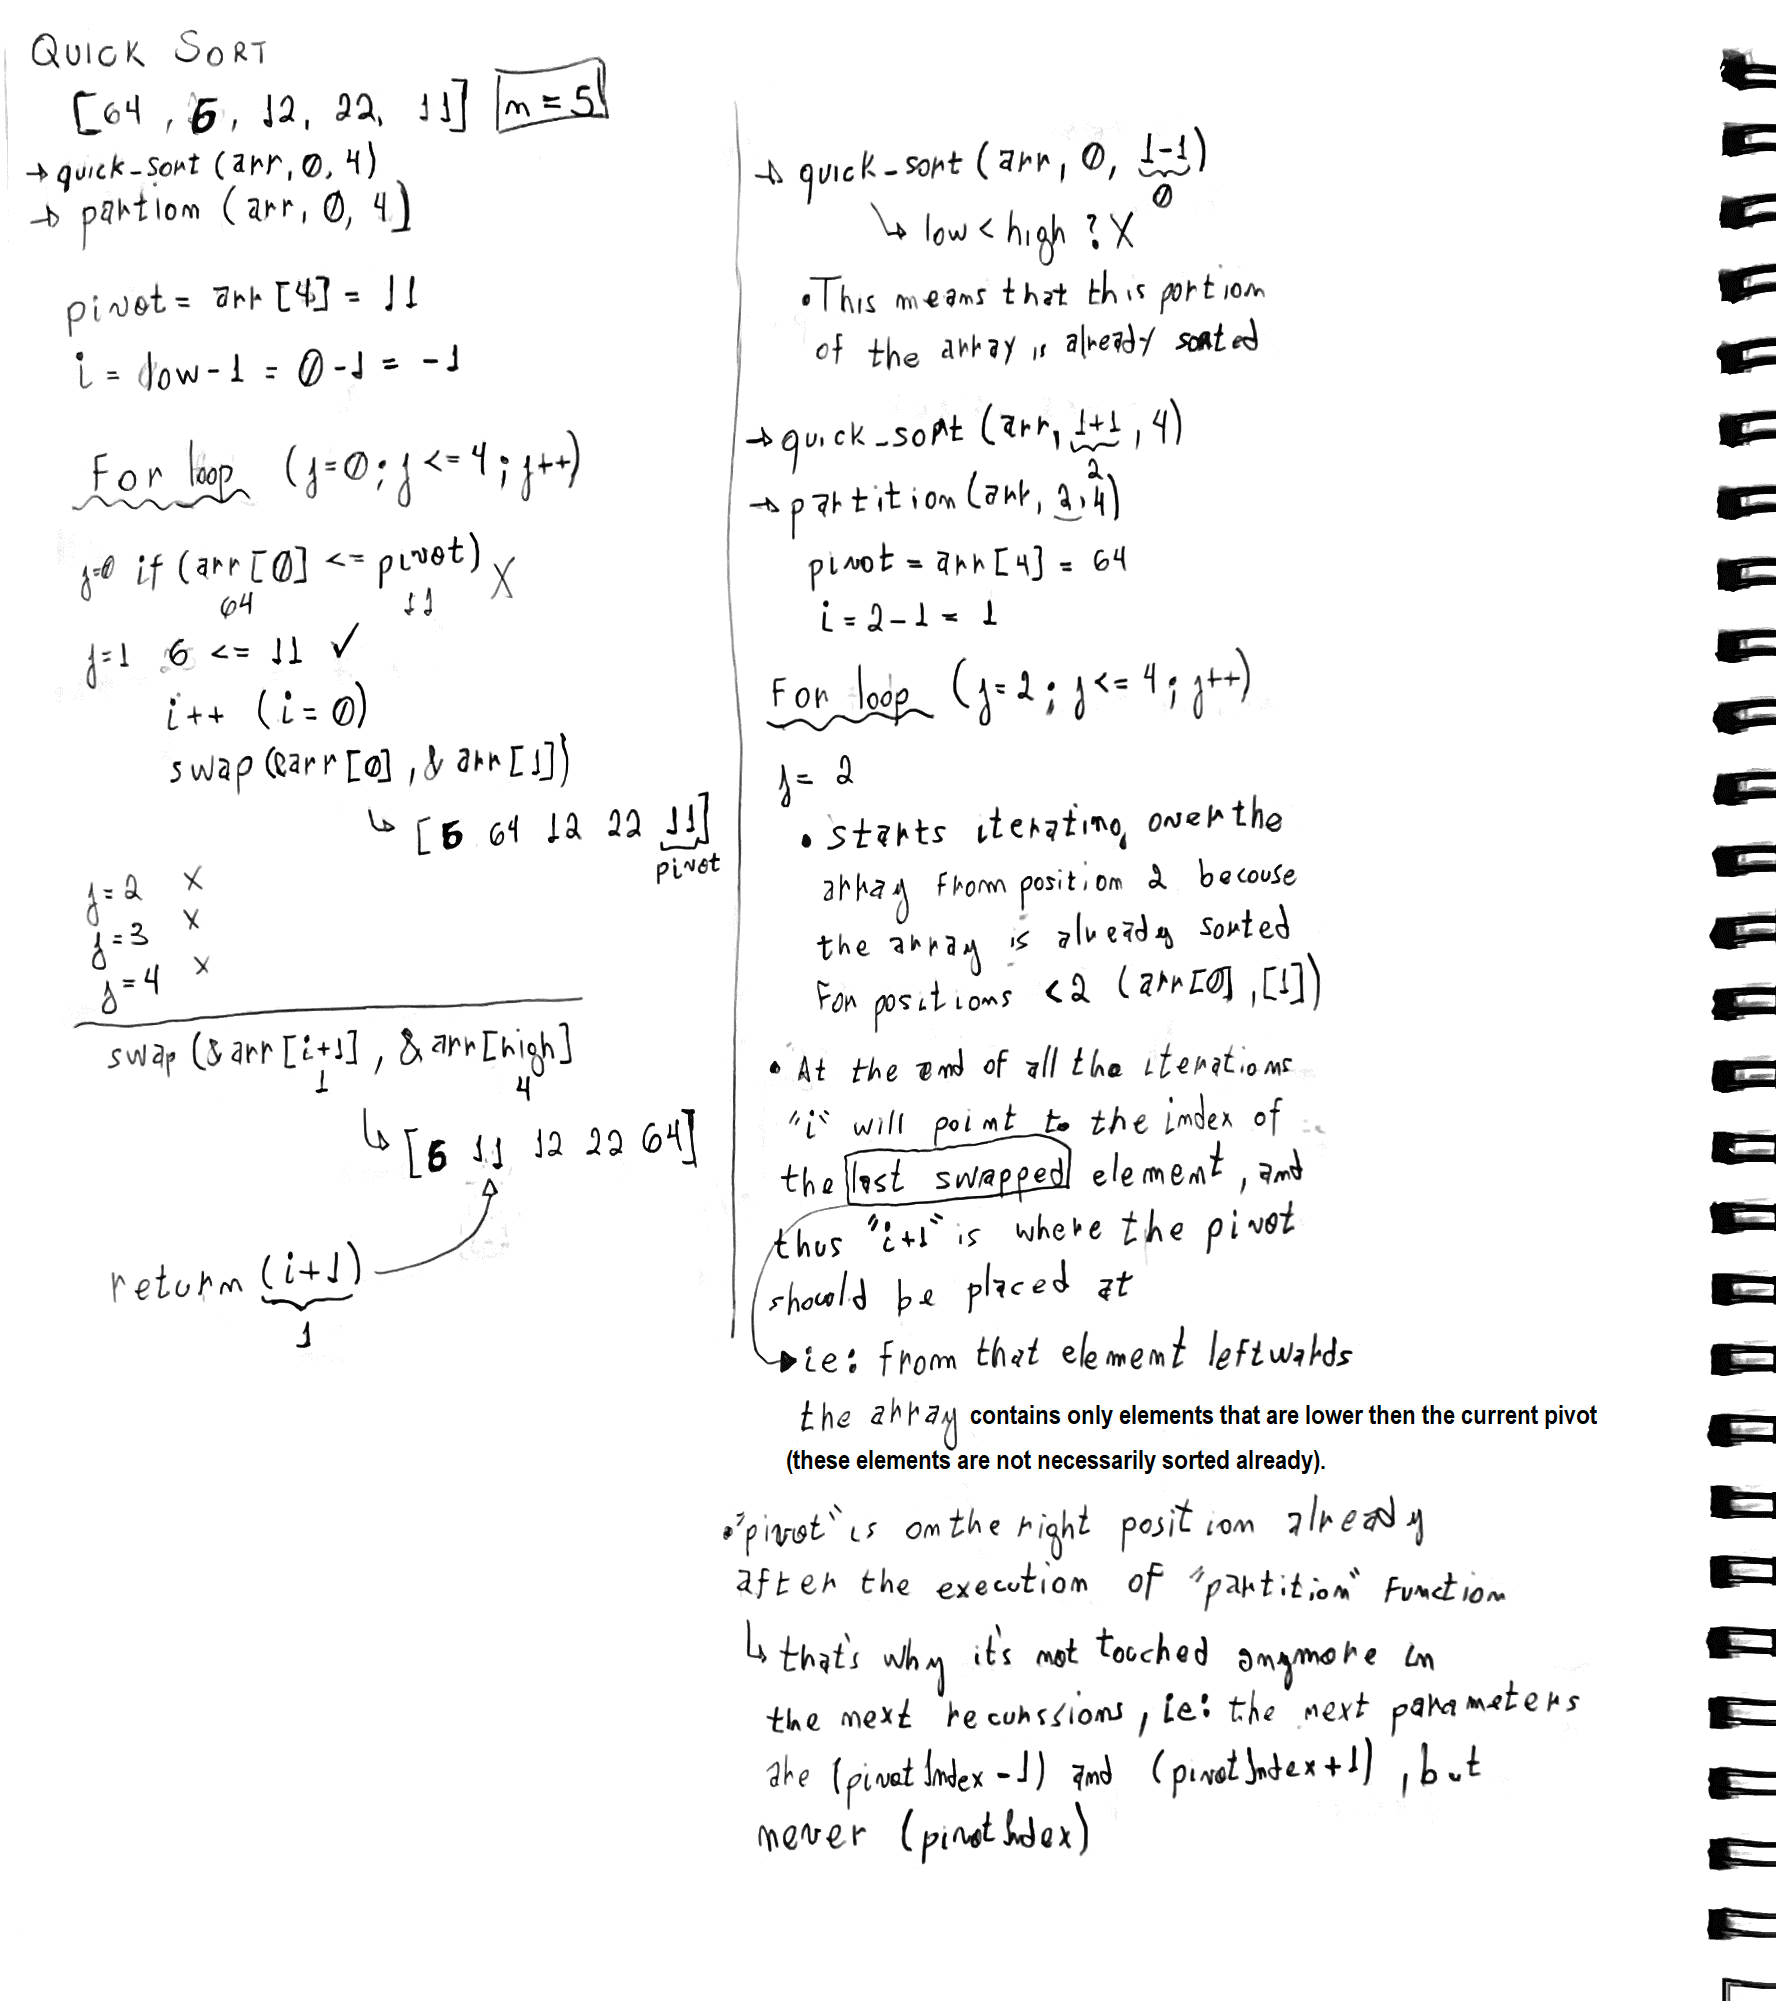 QUICK SORT
[64, 6, 12, 22, 11] n = 5
→ quick-sort (arr, 0, 4)
→ partion (arr, 0, 4)
pivot = arr [4] = 11
i = low-1 = 0-1 = -1
For loop (j=0; j<=4; j++)
j=0 if (arr[0] <= pivot) X
64 11
j=1 6 <= 11 ✓
i++ (i=0)
swap (&arr[0], & arr[1])
↳ [6 64 12 22 11]
pivot
j=2 X
j=3 X
j=4 X
swap (&arr[i+1], &arr[high]
1 4
↳ [6 11 12 22 64]
return (i+1)
1
→ quick-sort (arr, 0, 1-1)
0
↳ low < high ? X
• This means that this portion
of the array is already sorted
→ quick-sort (arr, 1+1, 4)
2
→ partition (arr, 2, 4)
pivot = arr[4] = 64
i = 2-1 = 1
For loop (j=2; j<=4; j++)
j = 2
• starts iterating over the
array from position 2 becouse
the array is already sorted
For positions <2 (arr[0], [1])
• At the end of all the iterations
"i" will point to the index of
the last swapped element, and
thus "i+1" is where the pivot
should be placed at
→ ie: from that element leftwards
the array contains only elements that are lower then the current pivot
(these elements are not necessarily sorted already).
• "pivot" is on the right position already
after the execution of "partition" Function
↳ that's why it's not touched anymore in
the next recurssions, ie: the next parameters
are (pivotIndex-1) and (pivotIndex+1), but
never (pivotIndex)